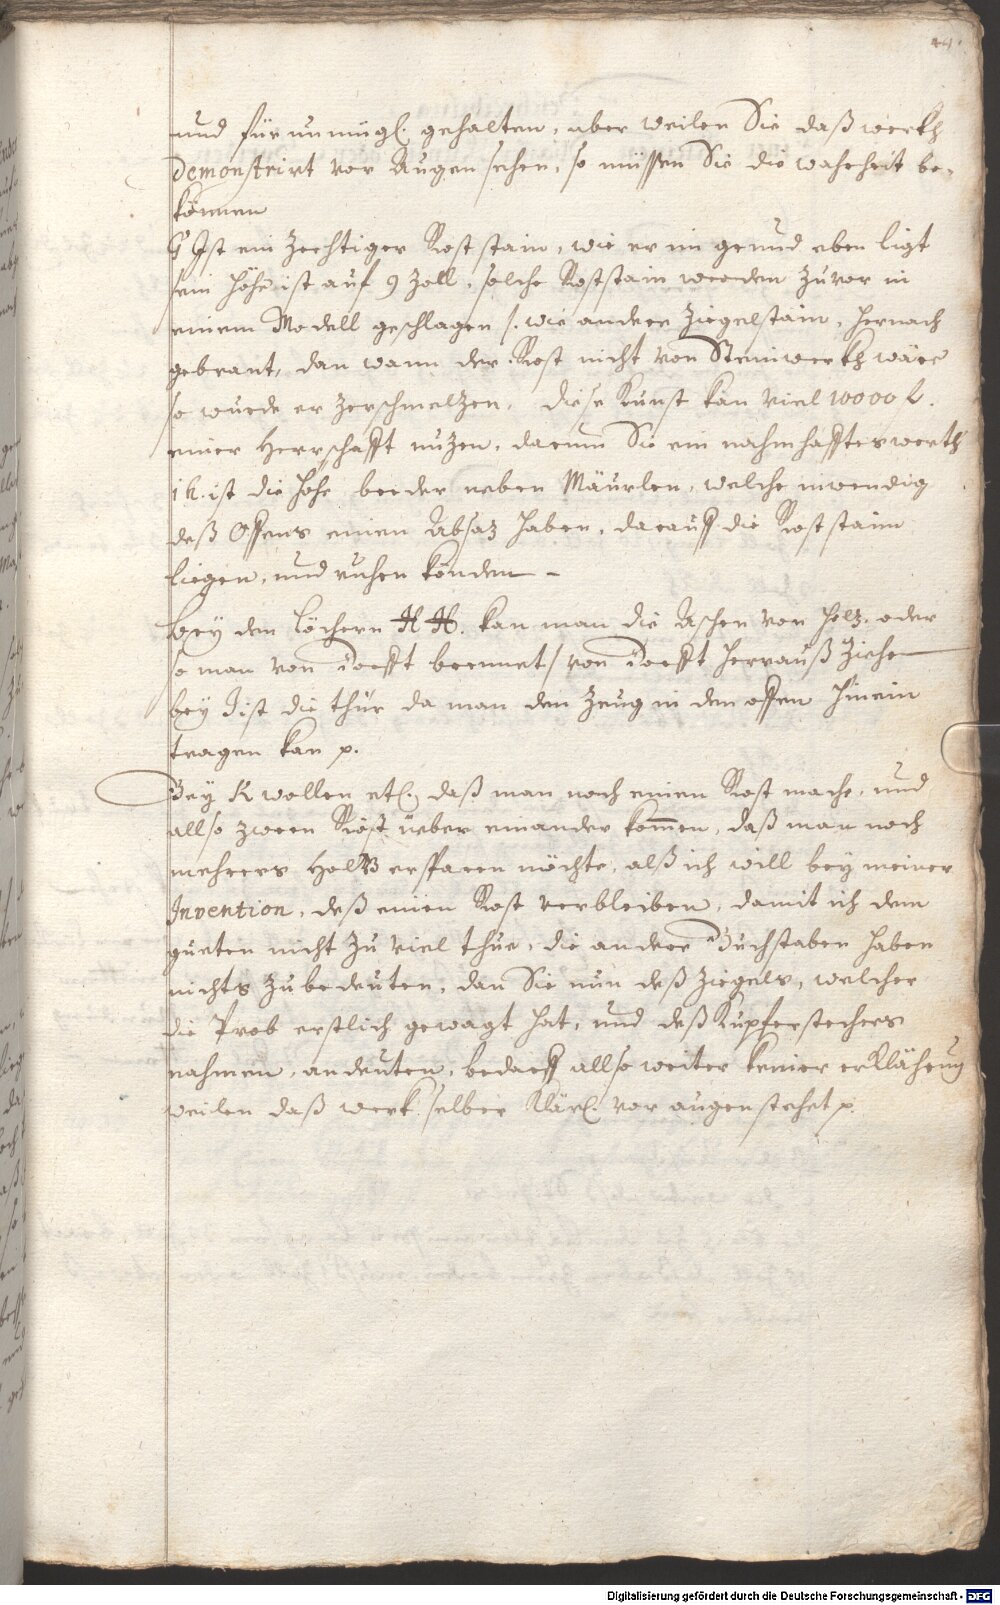 44.
und für unmügl. gehalten, aber weilen Sie daß werkh
demonstrirt vor Augen sehen, so müssen Sie die wahrheit be-
können
G Ist ein Rost stain, wie er im grund eben ligt
sein Höhe ist auf 9 Zoll, solche Roststain werden zuvor in
einem Modell geschlagen /. wie andere Ziegelstain, hernach
gebrant, dan wann der Rost nicht von Steinwerkh wäre
so wurde er zerschmelzen, diese Kunst kan viel 10000 f.
einer Herrschafft nuzen, darum Sie ein nahmhafftes werth
ist die Höhe beeder neben Mäurlen, welche inwendig
deß Offens einen Absaz haben, darauff die Roststain
liegen, und ruhen könden –
bey den Löchern H H. kan man die Aschen von Holz. oder
so man von Torfft brennet / von Torfft herrauß ziehen
bey I ist die thür da man den Zeug in den offen hinein
tragen kan p.
Bey K wollen etl. daß man noch einen Rost mache, und
allso zween Röst ueber einander kommen, daß man noch
mehrers Holtz ersparen möchte, alß ich will bey meiner
Invention, deß einen Rost verbleiben, damit ich dem
gueten nicht zu viel thue, die andere Buchstaben haben
nichts zubedeuten, dan Sie nun deß Zieglers, welcher
die Prob erstlich gewagt hat, und deß Kupferstechers
nahmen, andeuten, bedarff allso weiter keiner erklährung
weilen daß werk selber klärl. vor augen stehet p.
Digitalisierung gefördert durch die Deutsche Forschungsgemeinschaft - DFG